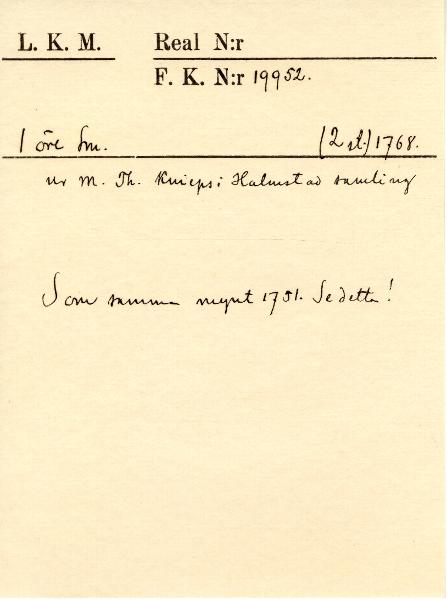 L. K. M. Real N:r
F. K. N:r 19952.
1 öre Sm. (2 st.) 1768.
ur M. Th. Knieps i Halmstad samling
Som samma mynt 1751. Se detta!